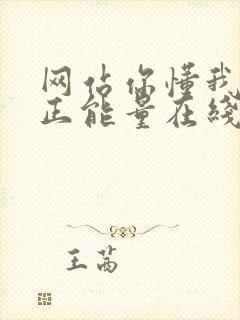 网站你懂我
正能量在线
王茜